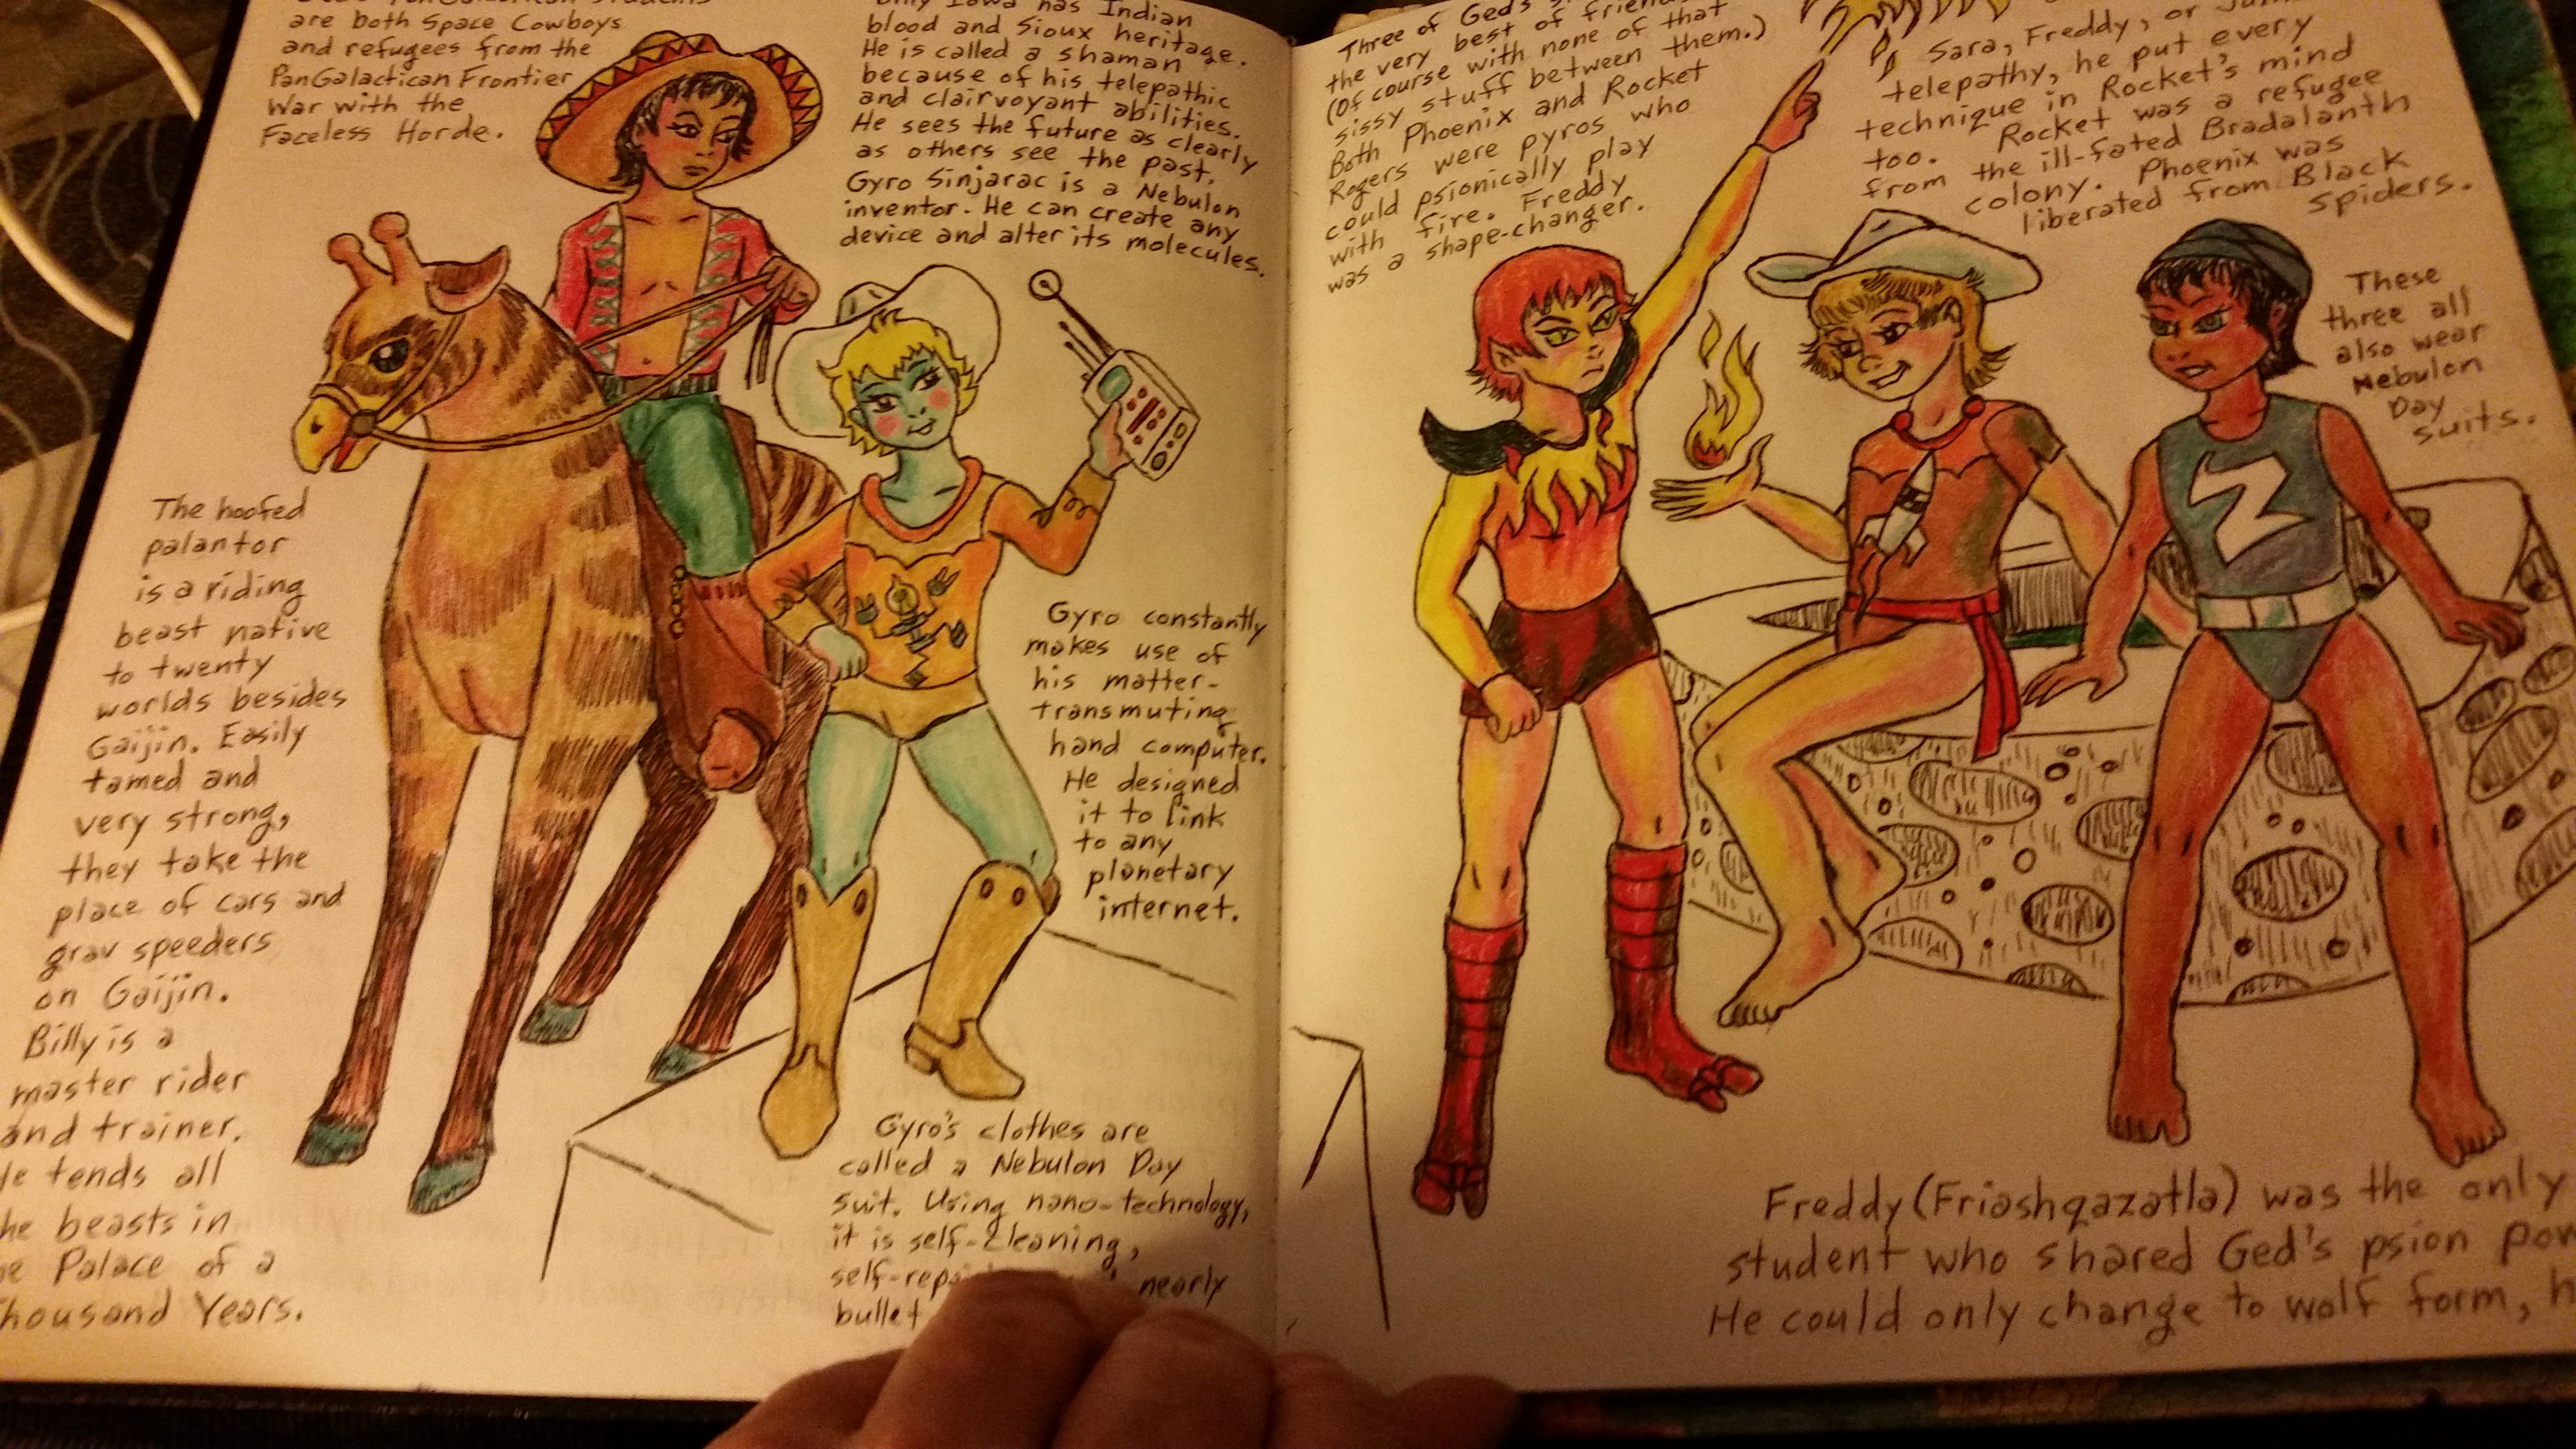 are both Space Cowboys
and refugees from the
PanGalactican Frontier
War with the
Faceless Horde.
only Iowa has Indian
blood and Sioux heritage.
He is called a shaman
because of his telepathic
and clairvoyant abilities.
He sees the future as clearly
as others see the past.
Gyro Sinjarac is a Nebulon
inventor. He can create any
device and alter its molecules.
The hoofed
palantor
is a riding
beast native
to twenty
worlds besides
Gaijin. Easily
tamed and
very strong,
they take the
place of cars and
grav speeders
on Gaijin.
Billy is a
master rider
and trainer.
He tends all
the beasts in
Palace of a
Thousand Years.
Gyro constantly
makes use of
his matter-
transmuting
hand computer.
He designed
it to link
to any
planetary
internet.
Gyro's clothes are
called a Nebulon Day
suit. Using nano-technology,
it is self-cleaning,
nearly
bullet
Three of Ged's
the very best of
(Of course with none of that
sissy stuff between them.)
Both Phoenix and Rocket
Rogers were pyros who
could psionically play
with fire. Freddy
was a shape-changer.
Sara, Freddy, or
telepathy, he put every
technique in Rocket's mind
too. Rocket was a refugee
from the ill-fated Bradalanth
colony. Phoenix was
liberated from Black
Spiders.
These
three all
also wear
Nebulon
Day
suits.
Freddy (Friashqazatla) was the only
student who shared Ged's psion
He could only change to wolf form,
Z